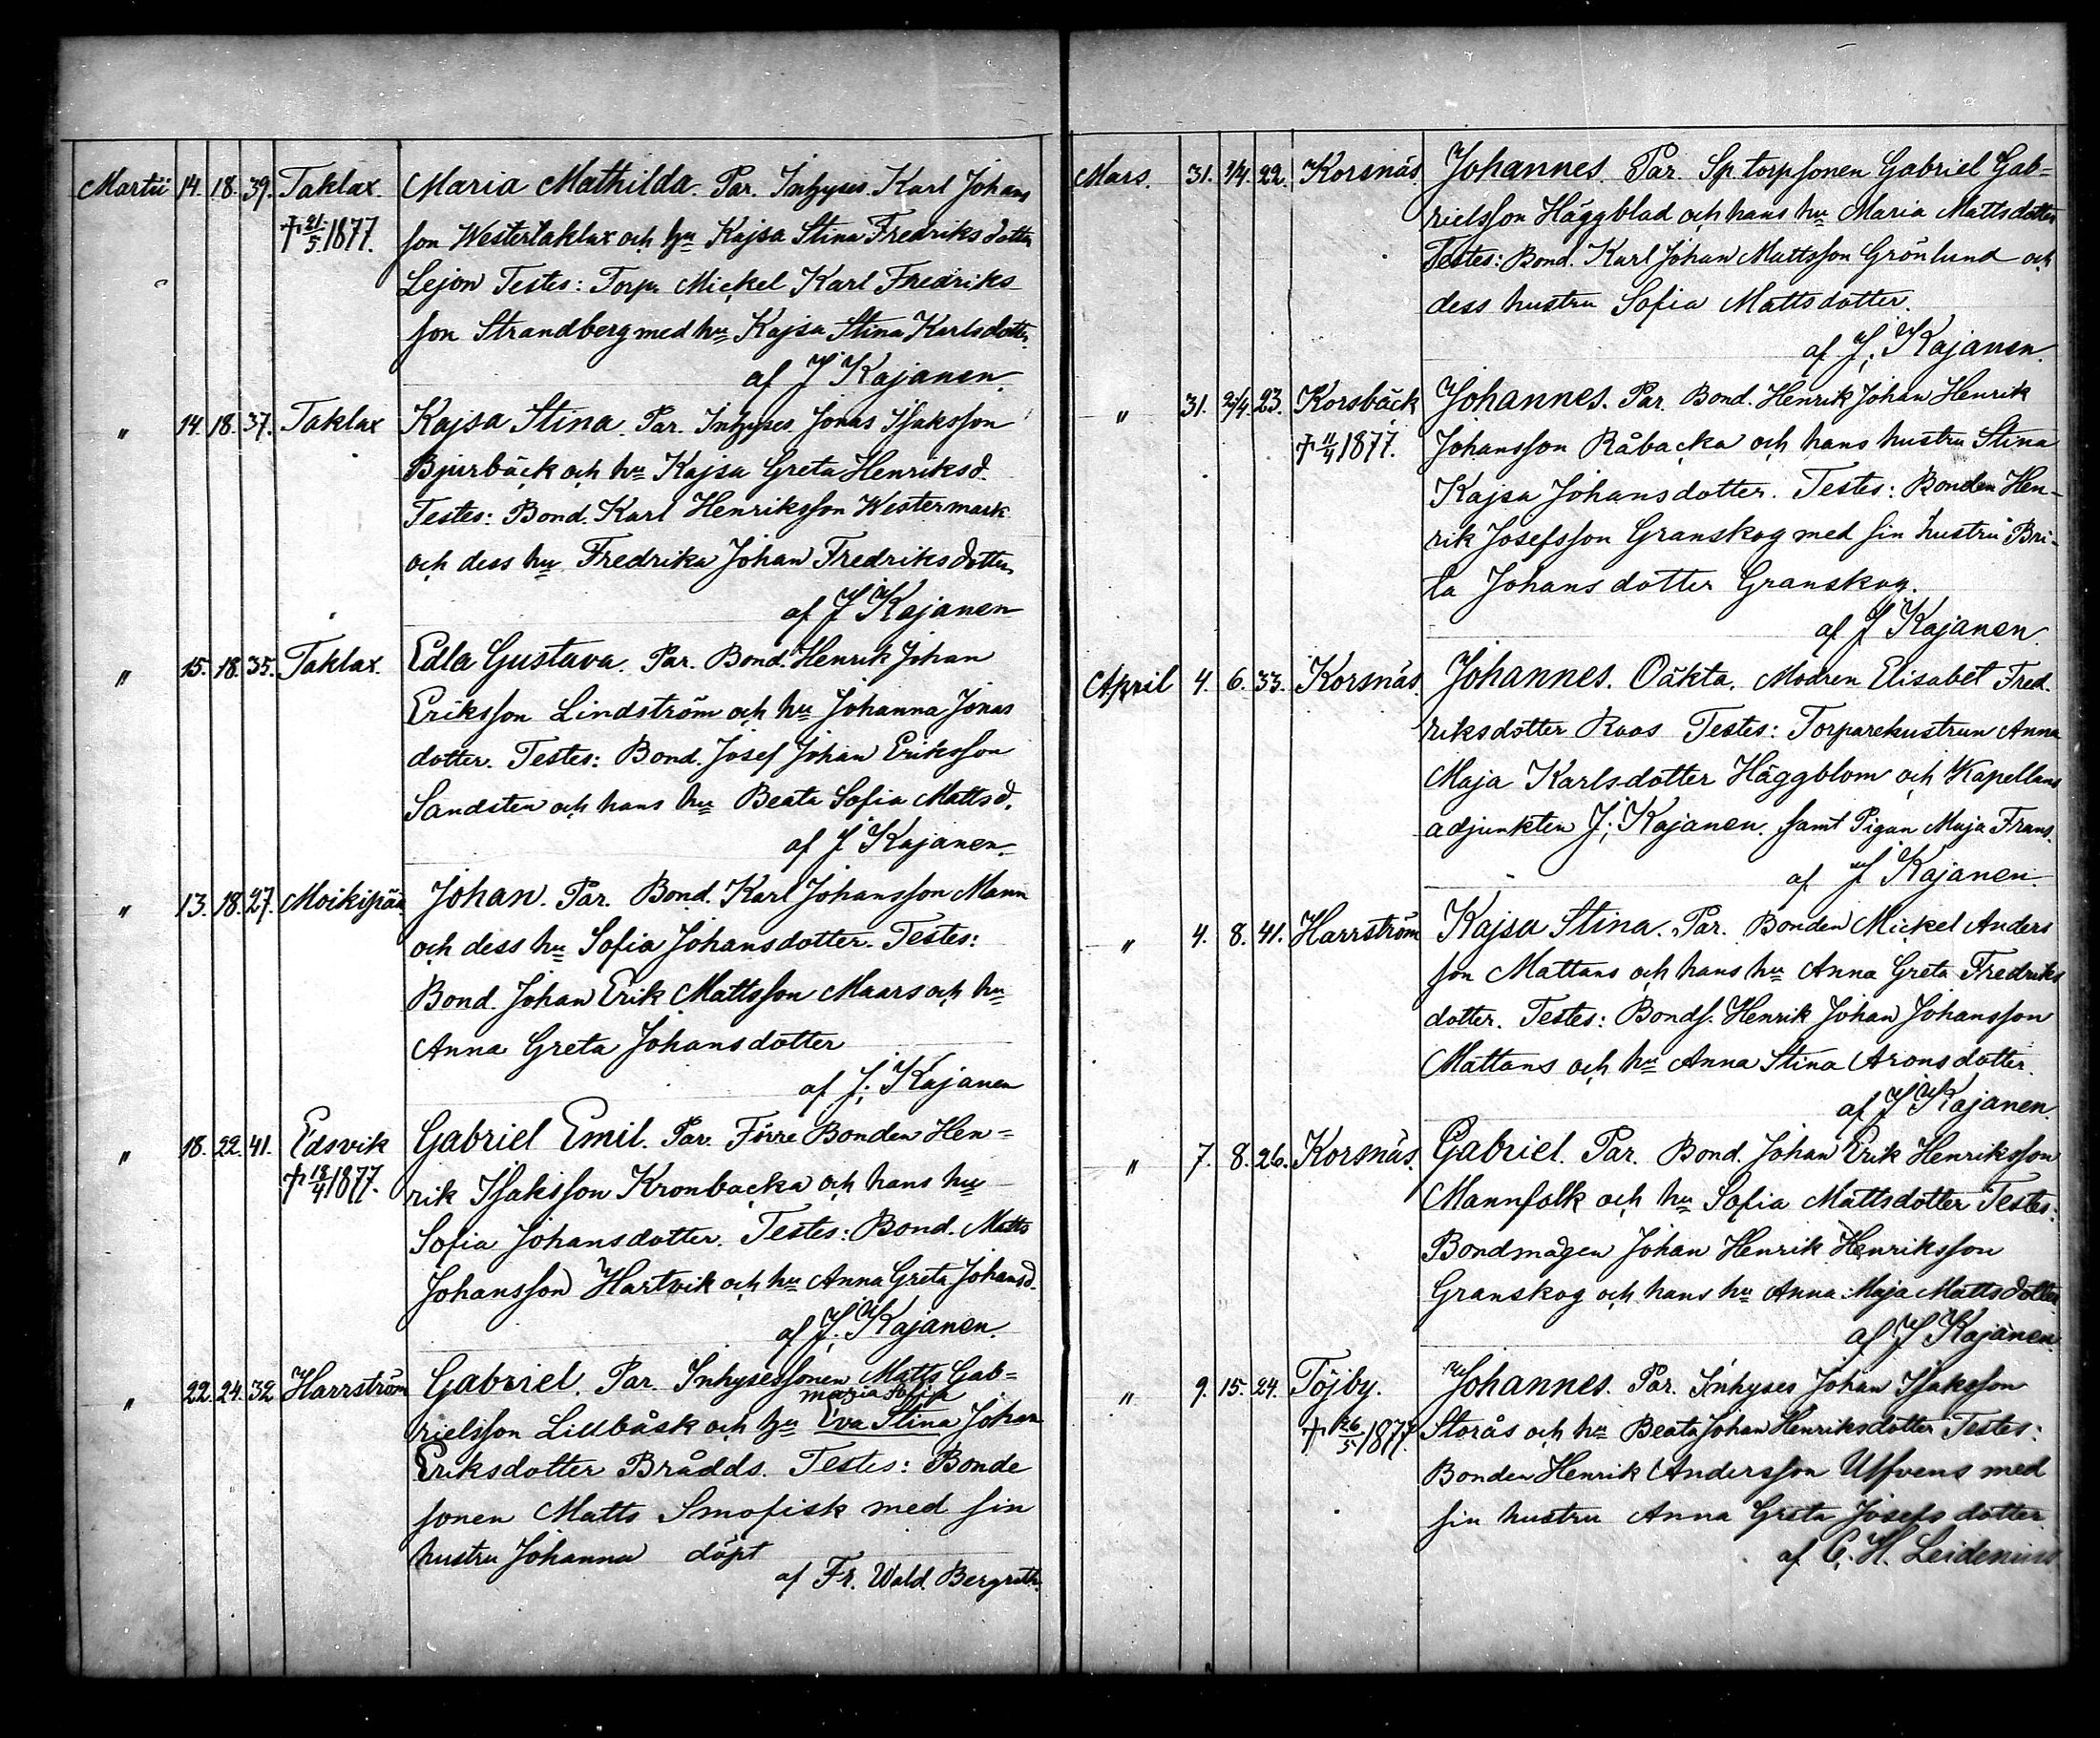 Martii 14. 18. 39. Taklax. Maria Mathilda. Par. Inhyses. Karl Johans
† 21/5 1877. son Westertaklax och hu Kajsa Stina Fredriksdotter
Lejon Testes: Torp. Mickel Karl Fredriks
son Strandberg med hu Kajsa Stina Karlsdotter.
af J Kajanen.
" 14. 18. 37. Taklax Kajsa Stina. Par. Inhyses Jonas Isaksson
Bjurbäck och hu Kajsa Greta Henriksd.
Testes: Bond. Karl Henriksson Westermark
och dess hu Fredrika Johan Fredriksdotter
af J Kajanen
" 15. 18. 35. Taklax. Edla Gustava. Par. Bond. Henrik Johan
Eriksson Lindström och hu Johanna Jonas
dotter. Testes: Bond. Josef Johan Eriksson
Sandsten och hans hu Beata Sofia Mattsd.
af J Kajanen.
" 13. 18. 27. Moikipää Johan. Par. Bond. Karl Johansson Mann
och dess hu Sofia Johansdotter. Testes:
Bond. Johan Erik Mattsson Maars och hu
Anna Greta Johansdotter
af J. Kajanen
" 18. 22. 41. Edsvik Gabriel Emil. Par. Förre Bonden Hen=
† 18/4 1877. rik Isaksson Kronbacka och hans hu
Sofia Johansdotter. Testes: Bond. Matts
Johansson Hartvik och hu Anna Greta Johansd.
af J. Kajanen.
" 22. 24. 32 Harrström Gabriel. Par. Inhysessonen Matts Gab=
maria Sofia
rielsson Lillbåsk och hu Eva Stina Johan
Eriksdotter Brådds. Testes: Bonde
sonen Matts Smofisk med sin
hustru Johanna döpt
af Fr. Wald. Bergroth.
Mars. 31. 2/4. 22. Korsnäs. Johannes. Par. Sp torpsonen Gabriel Gab=
rielsson Häggblad och hans hu Maria Mattsdotter
Testes: Bond. Karl Johan Mattsson Grönlund och
dess hustru Sofia Mattsdotter.
af J. Kajanen.
" 31. 2/4. 23. Korsbäck Johannes. Par. Bond. Henrik Johan Henrik
† 11/4 1877. Johansson Råbacka och hans hustru Stina
Kajsa Johansdotter. Testes: Bonden Hen-
rik Josefsson Granskog med sin hustru Bri-
ta Johansdotter Granskog.
af J Kajanen
April 4. 6. 33. Korsnäs. Johannes. Oäkta. Modren Elisabet Fred.
riksdotter Roos Testes: Torparehustrun Anna
Maja Karlsdotter Häggblom och Kapellans
adjunkten J. Kajanen. samt Pigan Maja Frans.
af J Kajanen.
" 4. 8. 41. Harrström Kajsa Stina. Par. Bonden Mickel Anders
son Mattans och hans hu Anna Greta Fredriks
dotter. Testes: Bonds. Henrik Johan Johansson
Mattans och hu Anna Stina Aronsdotter.
af J Kajanen.
" 7. 8. 26. Korsnäs. Gabriel. Par. Bond. Johan Erik Henriksson
Mannfolk och hu Sofia Mattsdotter Testes:
Bondmågen Johan Henrik Henriksson
Granskog och hans hu Anna Maja Mattsdotter
af J Kajanen
" 9. 15. 24. Töjby. Johannes. Par. Inhyses Johan Isaksson
† 26/5 1877. Storås och hu Beata Johan Henriksdotter Testes:
Bonden Henrik Andersson Ulfvens med
sin hustru Anna Greta Josefsdotter
af C. H. Leidenius